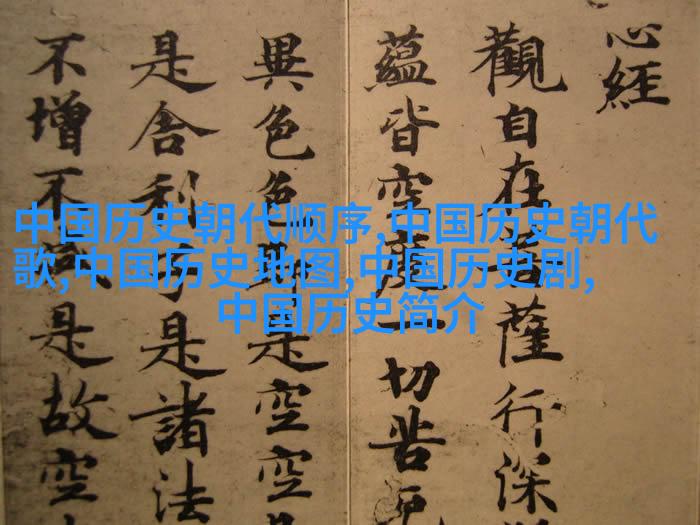 心經
觀自在菩薩行深
蘊皆空度一切苦厄
異色色即是空空
是舍利子是諸法
不增不減是故空
中国历史朝代顺序,中国历史朝代
歌,中国历史地图,中国历史剧,
中国历史简介